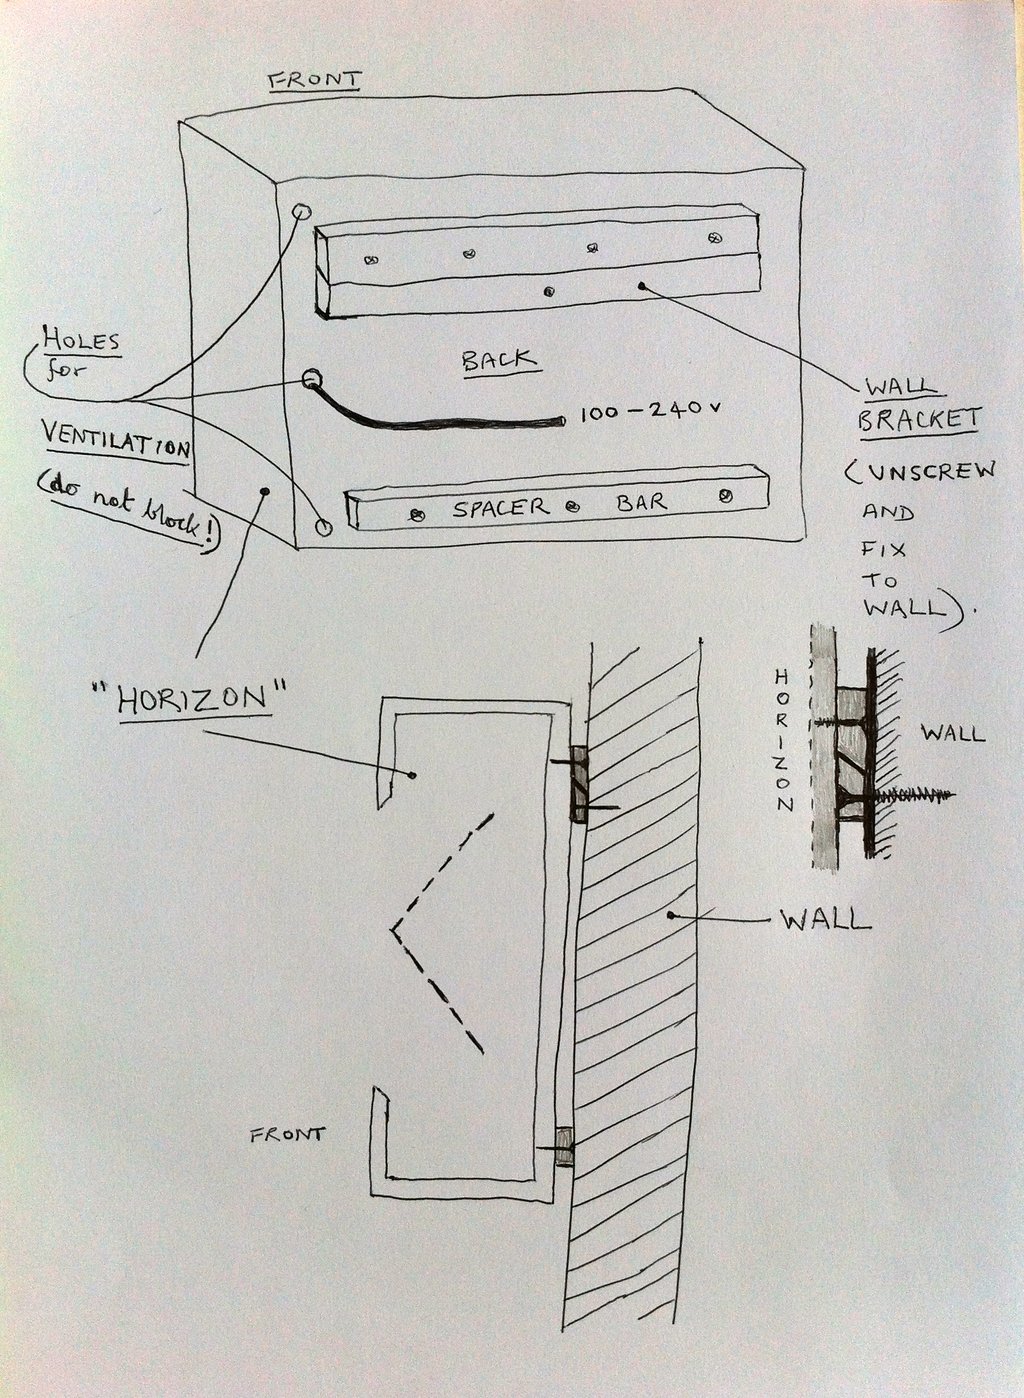 FRONT
HOLES
for
VENTILATION
(do not block!)
BACK
100-240v
SPACER BAR
WALL
BRACKET
(UNSCREW
AND
FIX
TO
WALL).
"HORIZON"
HORIZON
WALL
WALL
FRONT